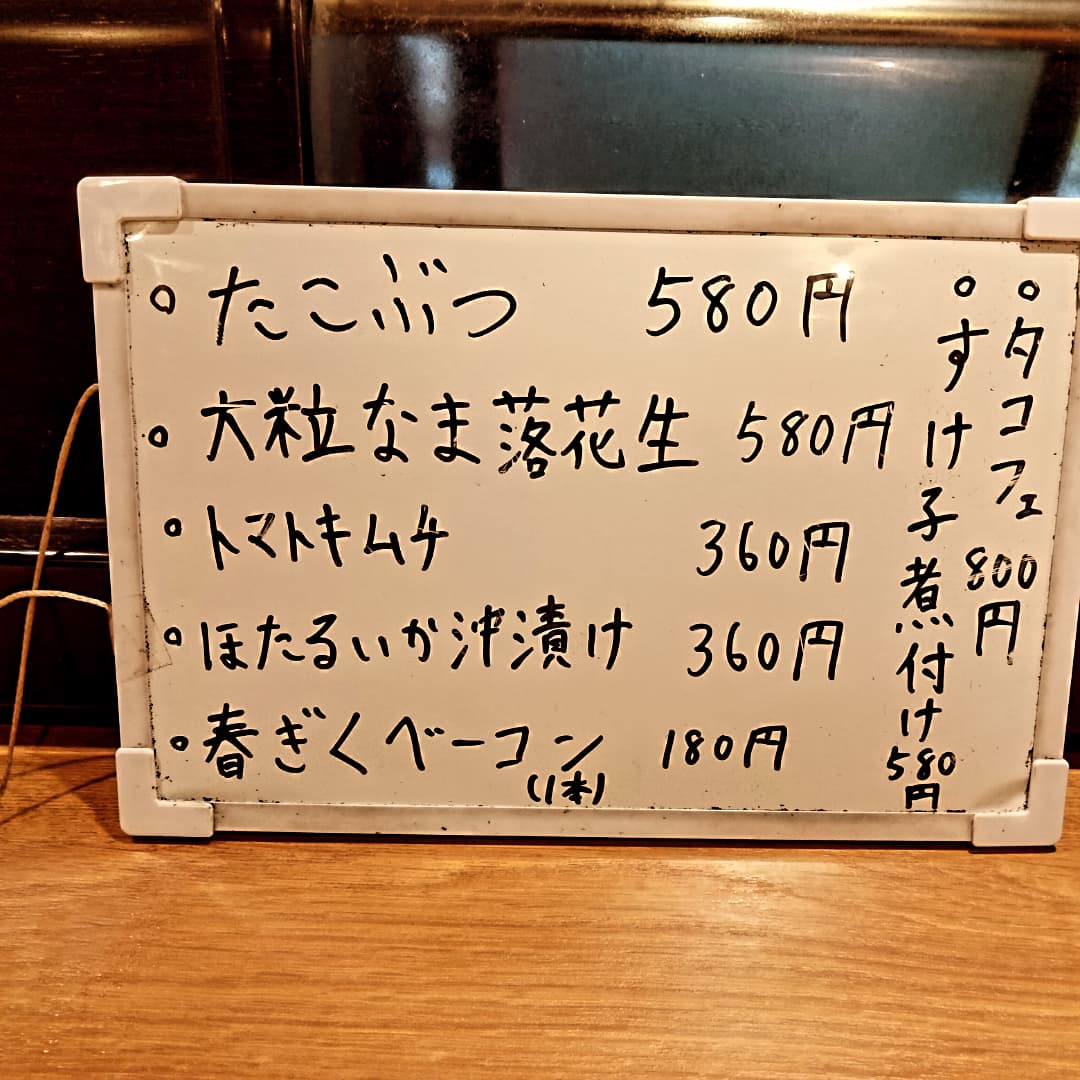 ○たこぶつ 580円
○大粒なま落花生 580円
○トマトキムチ 360円
○ほたるいか沖漬け 360円
○春ぎくベーコン 180円
(1本)
○タコフェ 800円
○すけ子煮付け 580円